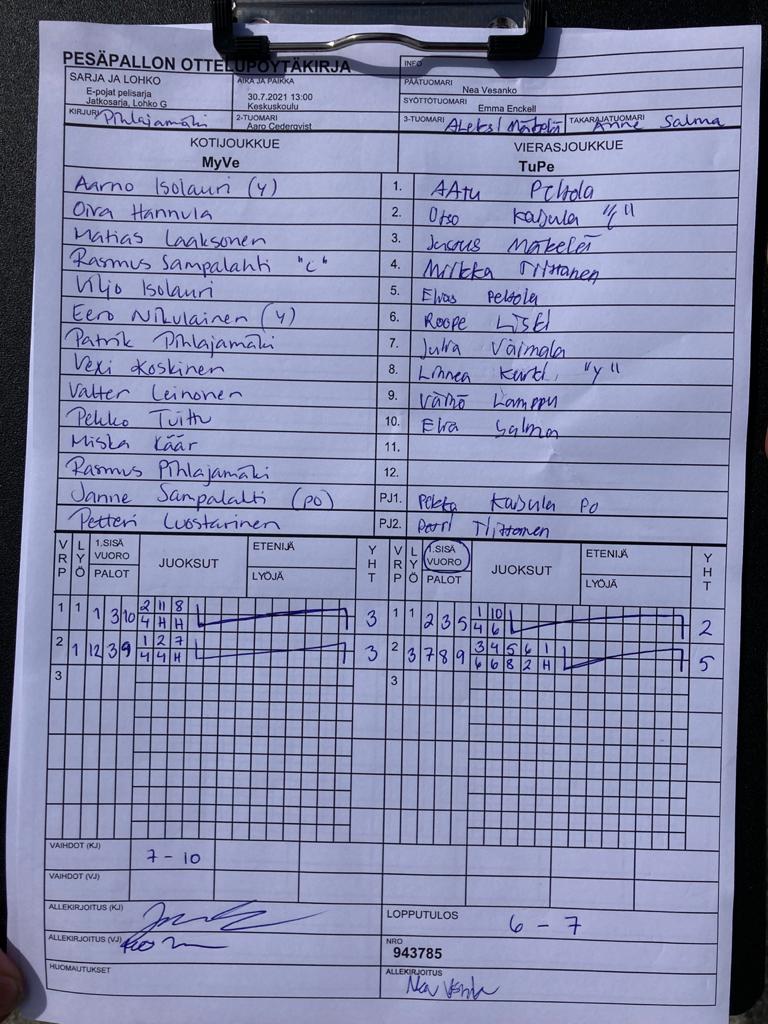 PESÄPALLON OTTELUPÖYTÄKIRJA
INFO
SARJA JA LOHKO
E-pojat pelisarja
Jatkosarja, Lohko G
AIKA JA PAIKKA
30.7.2021 13:00
Keskuskoulu
PÄÄTUOMARI
Nea Vesanko
SYÖTTÖTUOMARI
Emma Enckell
KIRJURI Pihlajamäki
2-TUOMARI
Aaro Cederqvist
3-TUOMARI Aleksi Mäkelä
TAKARAJATUOMARI Anne Salma
KOTIJOUKKUE
MyVe
VIERASJOUKKUE
TuPe
Aarno Isolauri (y) 1. AAtu Peltola
Oiva Hannula 2. Otso Kabula
Matias Laaksonen 3. Mäkelä
Rasmus Sampalahti "c" 4. Miikka Tiittanen
Viljo Isolauri 5. Peltola
Eero Nikulainen (y) 6. Roope
Patrik Pihlajamäki 7. Julia Väimala
Vexi Koskinen 8. Linnea "y"
Valter Leinonen 9. Väinö Lamppu
Pekko Tuittu 10. Salma
Miska Käär 11.
Rasmus Pihlajamäki 12.
Janne Sampalahti (po) PJ1. Pekka Kabula Po
Petteri Luostarinen PJ2. Petri Tiittanen
VRP LYÖ 1.SISÄ VUORO PALOT JUOKSUT ETENIJÄ LYÖJÄ YHT VRP LYÖ 1.SISÄ VUORO PALOT JUOKSUT ETENIJÄ LYÖJÄ YHT
1 1 1 3 10 2 11 8 3 1 1 2 3 5 1 10 2
4 H H 4 6
2 1 12 3 9 1 2 7 3 2 3 7 8 9 3 4 5 6 1 5
4 4 H 6 6 8 2 H
3 3
VAIHDOT (KJ) 7 - 10
VAIHDOT (VJ)
ALLEKIRJOITUS (KJ)
LOPPUTULOS 6 - 7
ALLEKIRJOITUS (VJ)
NRO
943785
HUOMAUTUKSET
ALLEKIRJOITUS